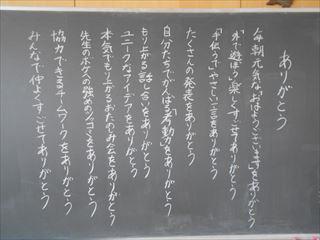 ありがとう
毎朝元気な「おはようございます」をありがとう
「外で遊ぼう」楽しくすごせてありがとう
「手伝うで」やさしい言をありがとう
たくさんの発表をありがとう
自分たちでがんばる「考動力」をありがとう
もり上がる話し合いをありがとう
ユニークなアイデアをありがとう
本気でもり上がるおたのしみ会をありがとう
先生のボケへの強めのツッコミをありがとう
協力できるチームワークをありがとう
みんなで仲よくすごせてありがとう